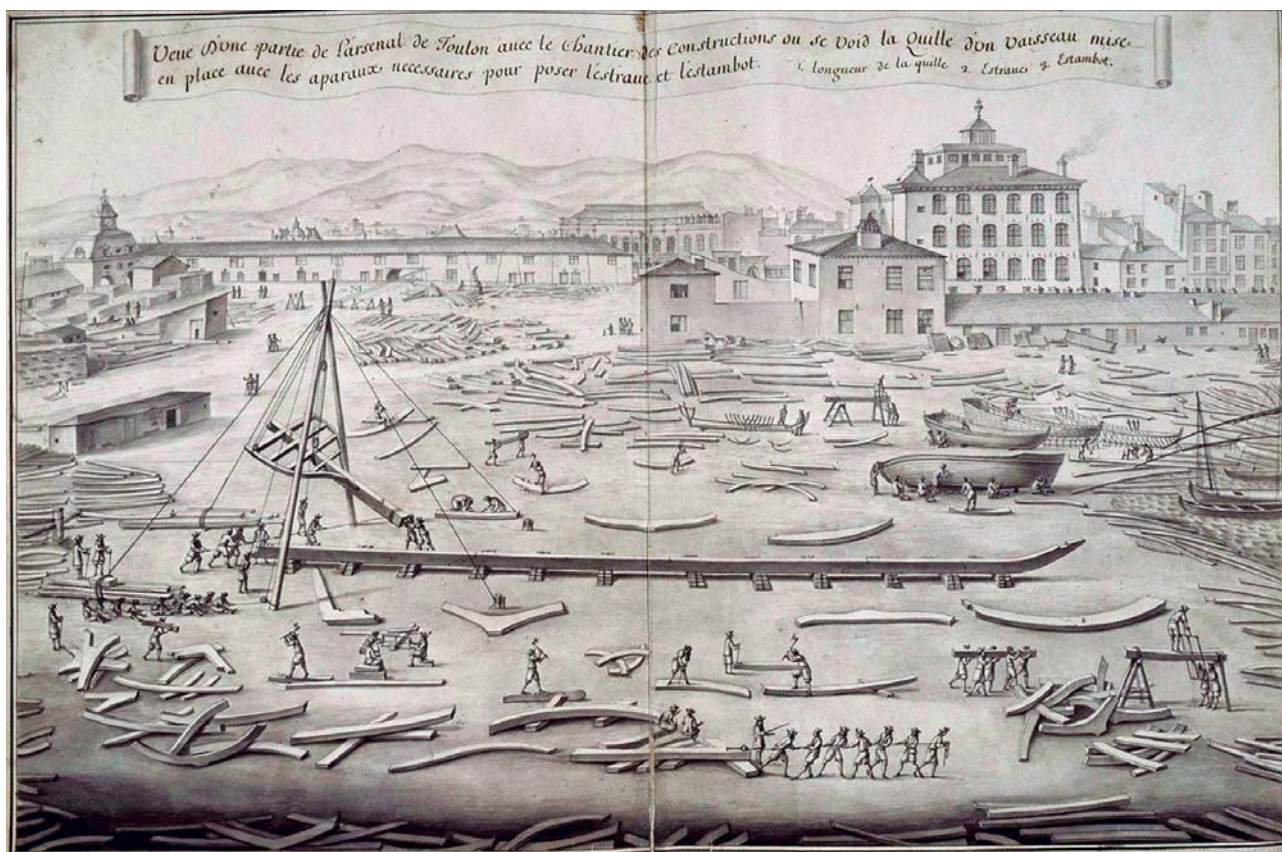 Veuë D'vne partie de l'arsenal de Toulon auec le Chantier des Constructions ou se void la Quille d'vn Vaisseau mise
en place auec les aparaux necessaires pour poser l'estraue et l'estambot. 1. longueur de la quille 2. Estraue 3. Estambot.